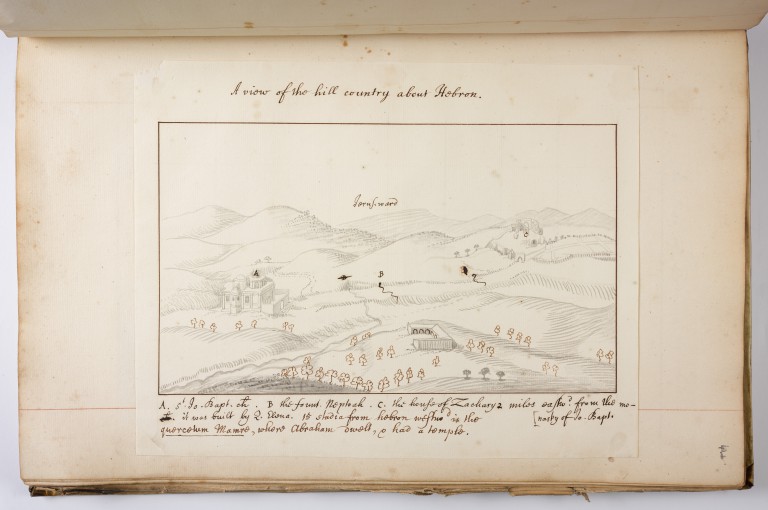 A view of the hill country about Hebron.
Jerusward
A
B
C
A. St. Jo. Bapt. ch. B the fount. Neptoah. C. the house of Zachary 2 miles eastwd. from the mo-
it was built by Q. Elena. 18 stadia from hebron westwd. is the [nastry of Jo. Bapt.
quercetum Mamre, where Abraham dwelt, & had a temple.